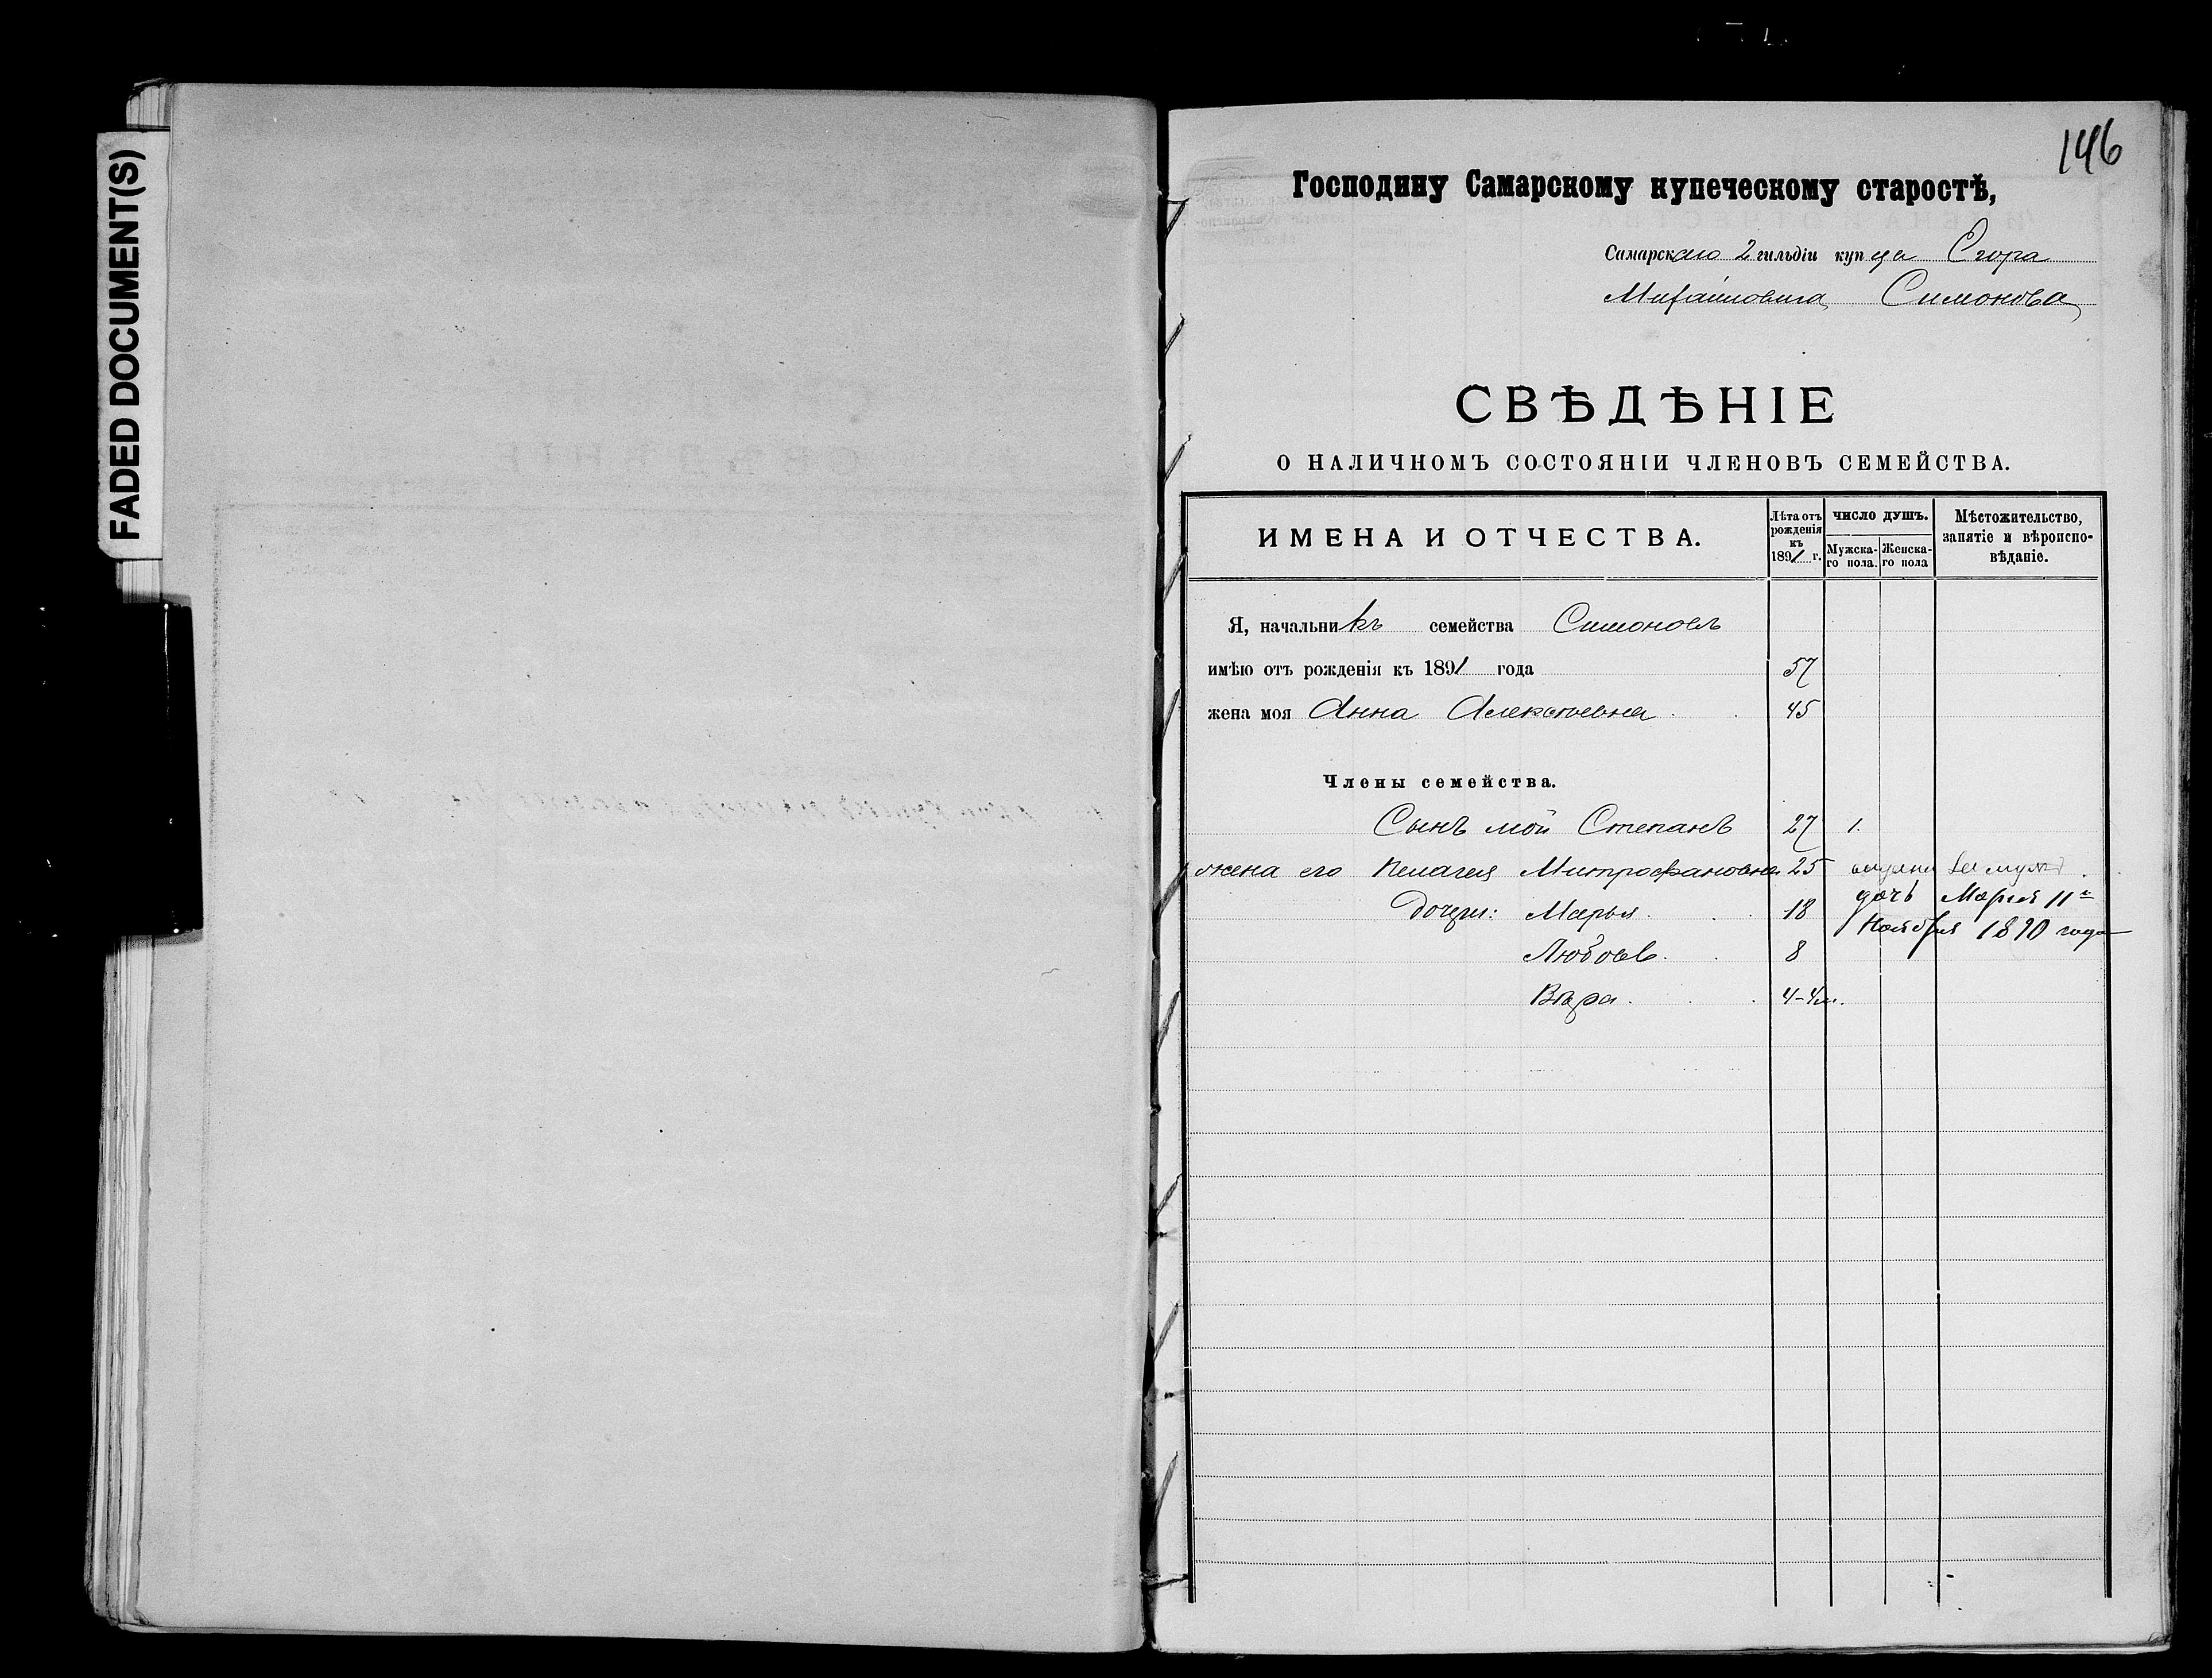 FADED DOCUMENT(S)
146
Господину Самарскому купеческому старостѣ,
Самарскаго 2 гильдіи купца Егора
Михайловича Симонова
СВѢДѢНІЕ
О НАЛИЧНОМЪ СОСТОЯНІИ ЧЛЕНОВЪ СЕМЕЙСТВА.
ИМЕНА И ОТЧЕСТВА.
Лѣта отъ рожденія къ 1891 г.
ЧИСЛО ДУШЪ.
Мужска-го пола.
Женска-го пола
Мѣстожительство, запятіе и вѣроиспо-вѣданіе.
Я, начальникъ семейства Симоновъ
имѣю отъ рожденія къ 1891 года 57
жена моя Анна Алексѣевна 45
Члены семейства.
Сынъ мой Степанъ 27 1.
жена его Пелагея Митрофановна 25
Дочери: Марья 18 дочь Марія 11
Ноября 1890 года
Любовь 8
Вѣра 4-4м.